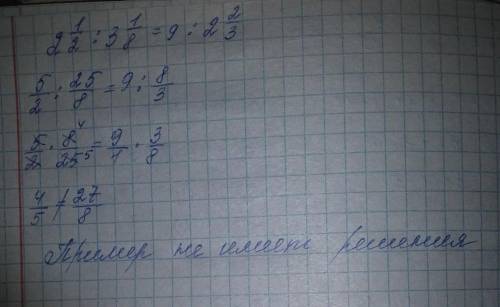 2 1/2 : 3 1/8 = 9 : 2 2/3
5/2 : 25/8 = 9 : 8/3
5/2 · 8⁴/25⁵ = 9/1 · 3/8
4/5 ≠ 27/8
Пример не имеет решения